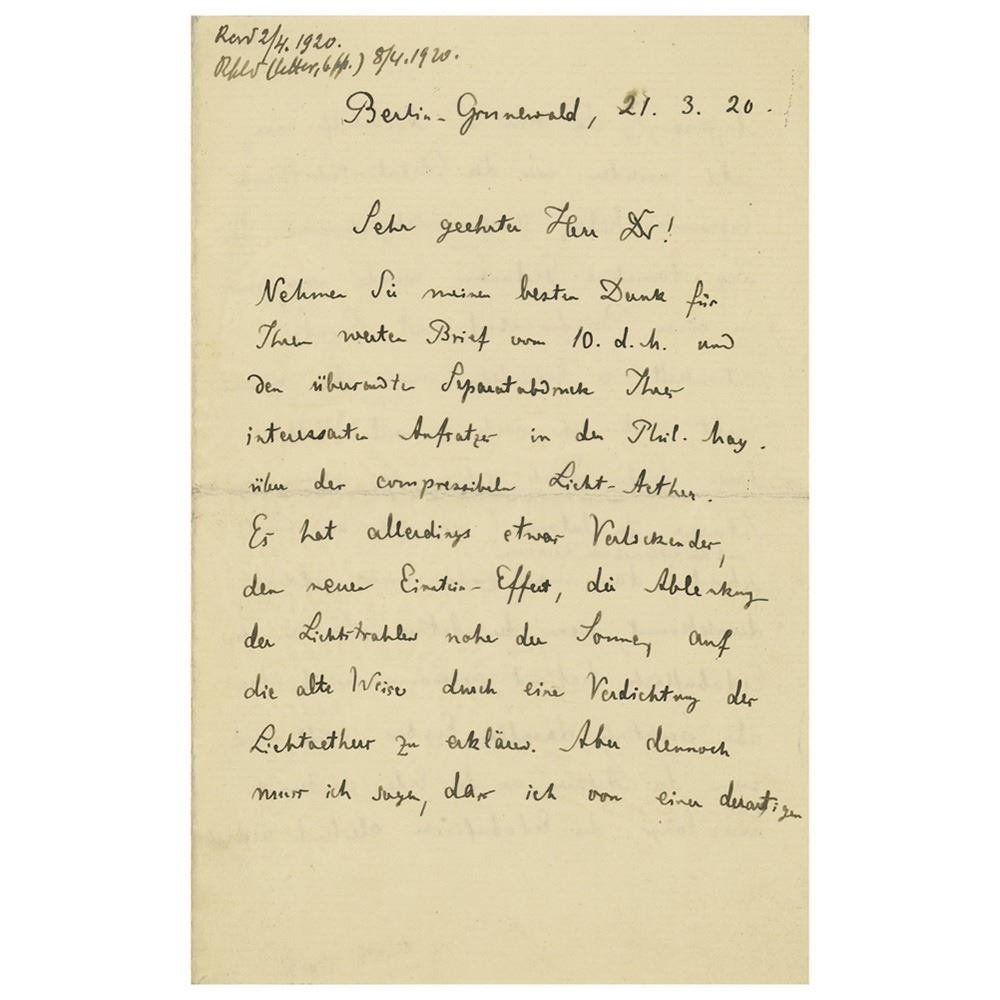 Recd 2/4. 1920.
Rpld (letter, 6 pp.) 8/4. 1920.
Berlin-Grunewald, 21. 3. 20.
Sehr geehrter Herr Dr!
Nehmen Sie meinen besten Dank für
Ihren werten Brief vom 10. d. M. und
den übersandten Separatabdruck Ihres
interessanten Aufsatzes in der Phil. Mag.
über den compressibeln Licht-Aether.
Es hat allerdings etwas Verlockendes,
den neuen Einstein-Effekt, die Ablenkung
der Lichtstrahlen nahe der Sonne, auf
die alte Weise durch eine Verdichtung des
Lichtaethers zu erklären. Aber dennoch
muss ich sagen, dass ich von einer derartigen